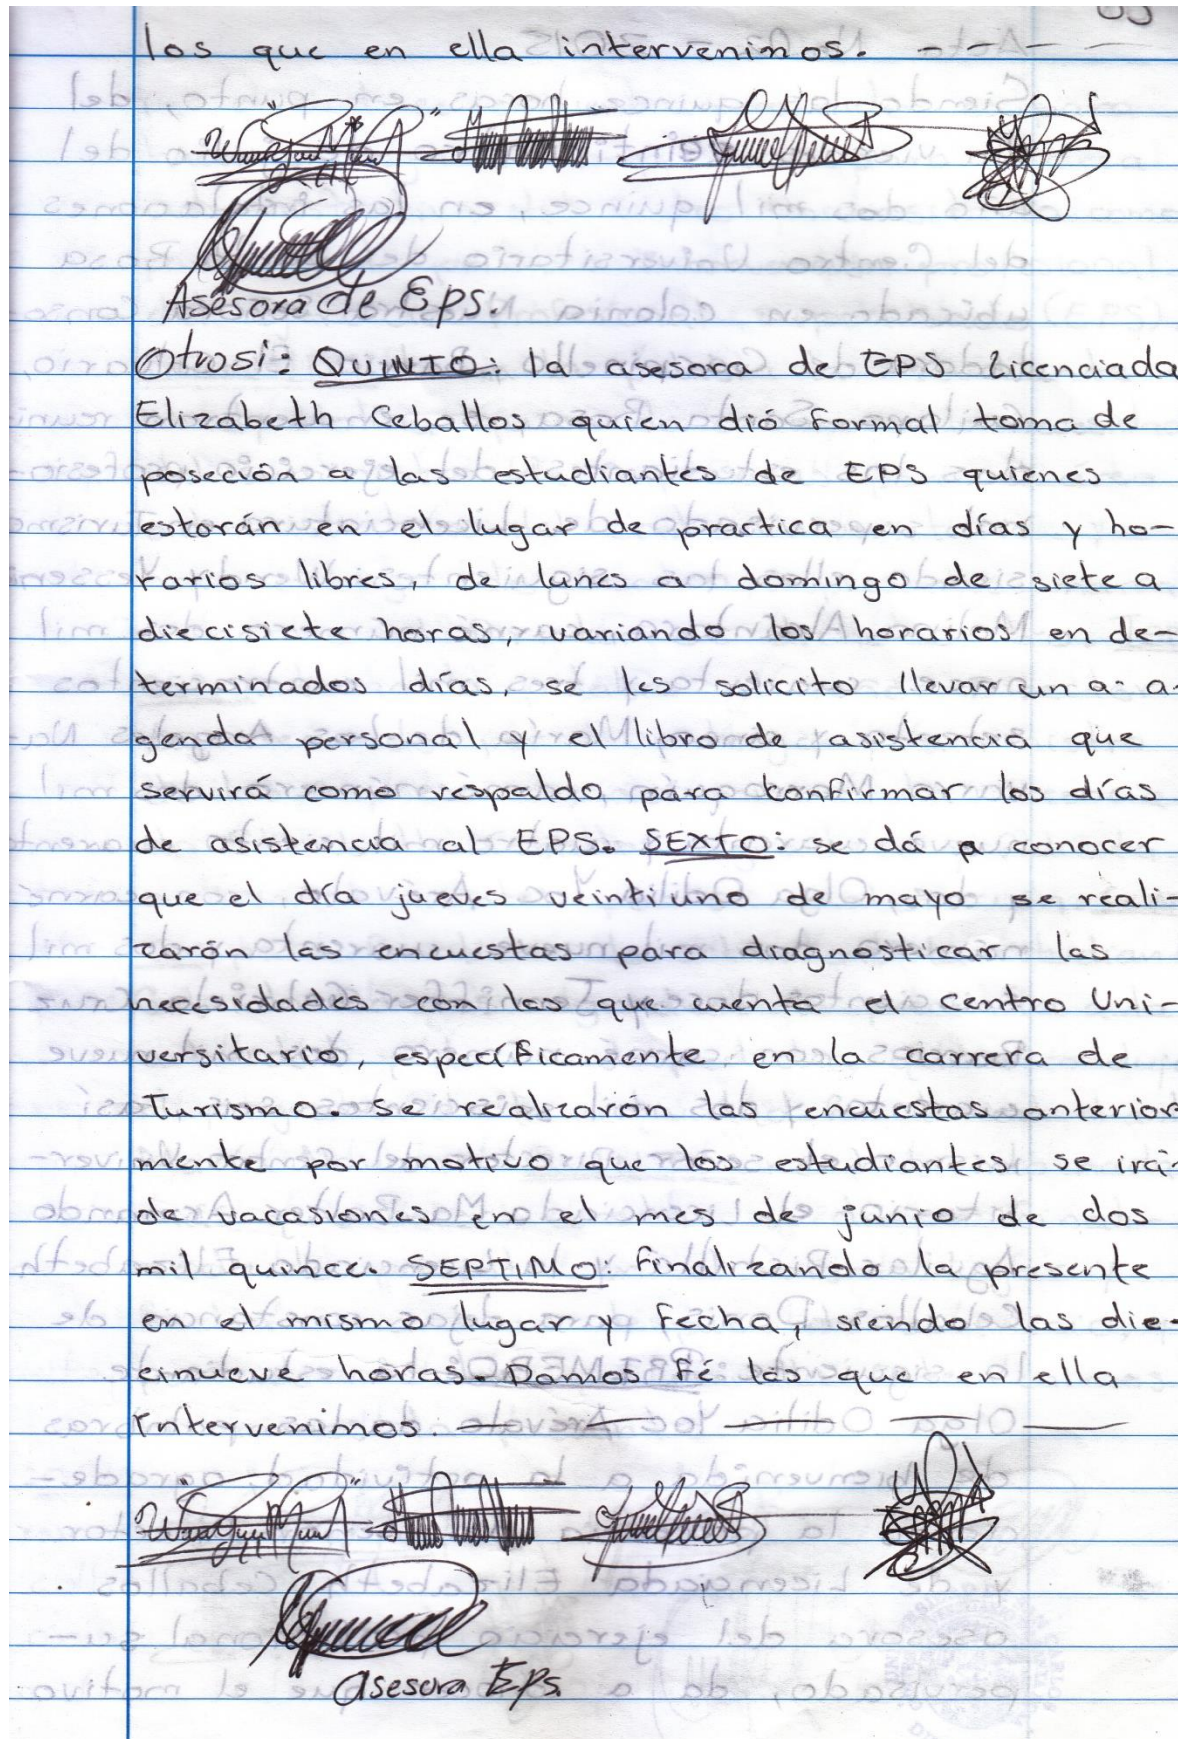 los que en ella intervenimos. - - - -
Asesora de Eps.
Otrosi: QUINTO: la asesora de EPS Licenciada
Elizabeth Ceballos quien dió formal toma de
poseción a las estudiantes de EPS quienes
estarán en el lugar de practica en días y ho-
rarios libres, de lunes a domingo de siete a
diecisiete horas, variando los horarios en de-
terminados días, se les solicito llevar un a: a-
genda personal y el libro de asistencia que
servirá como respaldo para confirmar los días
de asistencia al EPS. SEXTO: se dá a conocer
que el día jueves veintiuno de mayo se reali-
zarón las encuestas para diagnosticar las
necesidades con las que cuenta el centro Uni-
versitario, específicamente en la carrera de
Turismo. Se realizarón las encuestas anterior
mente por motivo que los estudiantes se irá-
de vacasiones en el mes de junio de dos
mil quince. SEPTIMO: finalizando la presente
en el mismo lugar y fecha, siendo las die-
cinueve horas. Damos fé las que en ella
intervenimos. - - - - -
Asesora Eps.